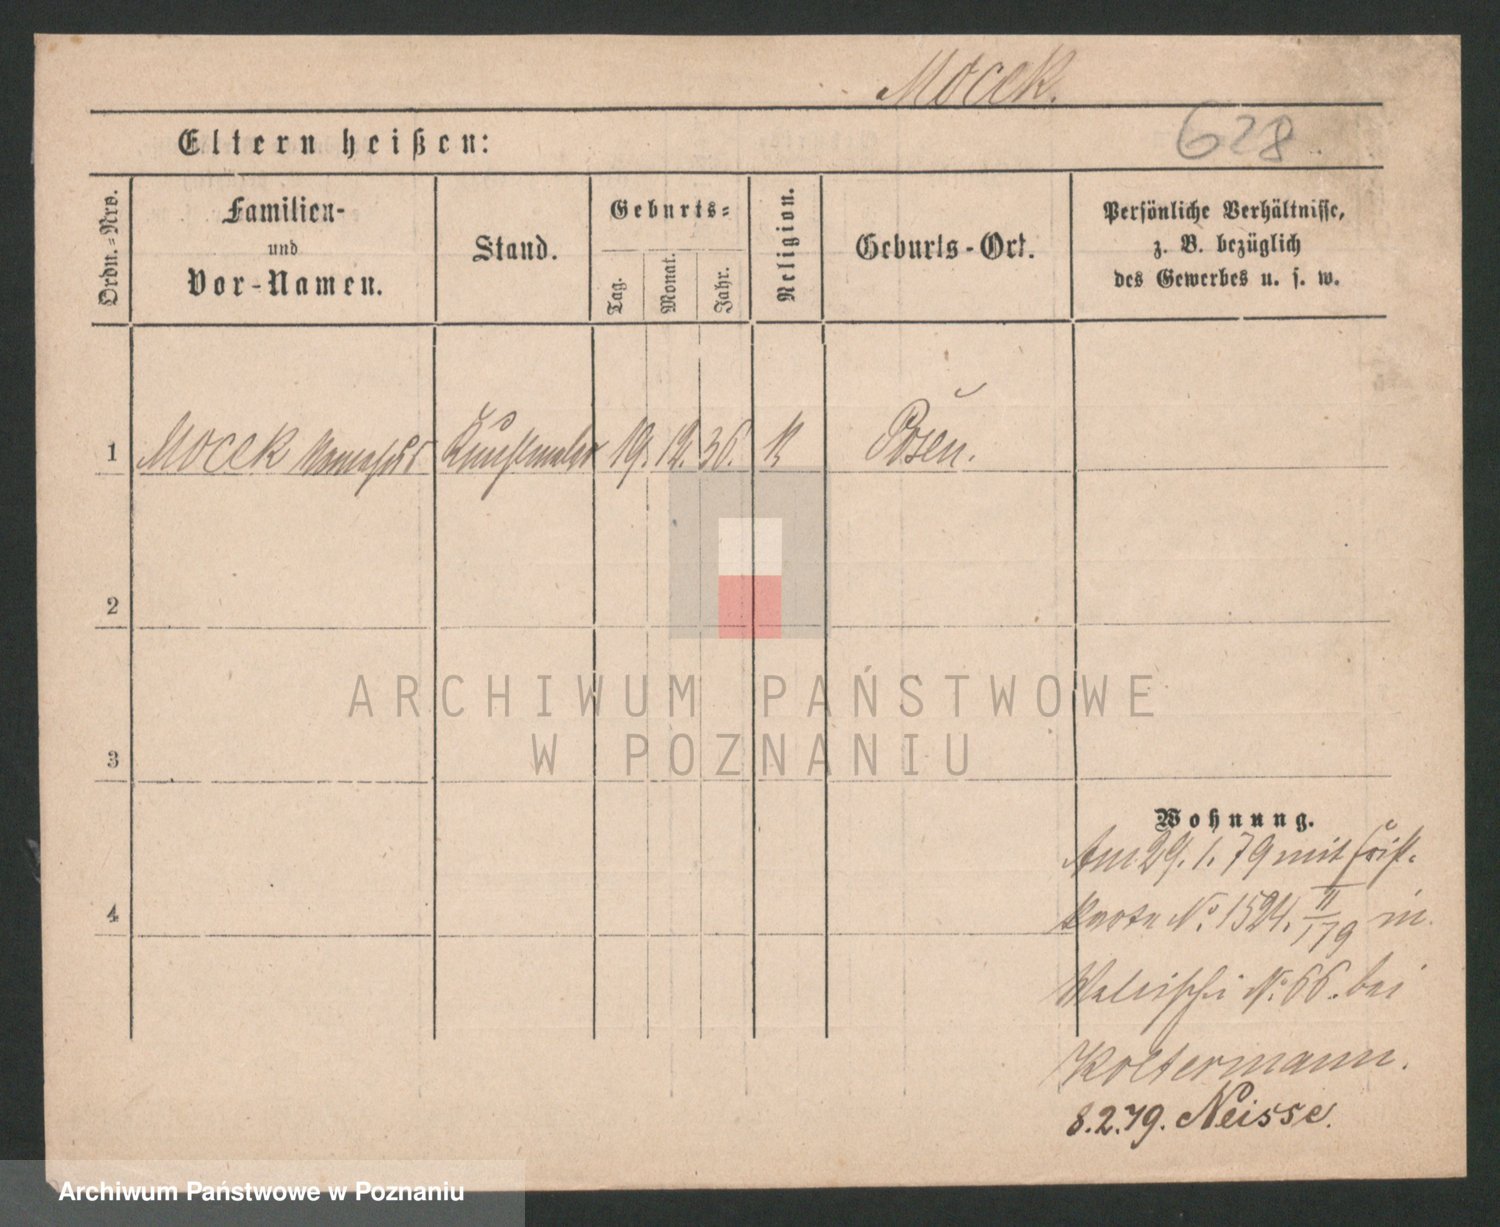 Mocek.
Eltern heißen:
628
Ordn.=Nro.
Familien-
und
Vor-Namen.
Stand.
Geburts=
Tag.
Monat.
Jahr.
Religion.
Geburts-Ort.
Persönliche Verhältnisse,
z. B. bezüglich
des Gewerbes u. s. w.
1 Mocek Kunstmaler 19. 12. 36. K Posen.
2
3
4
ARCHIWUM PAŃSTWOWE
W POZNANIU
Wohnung.
Am 29. 1. 79 mit
karte No. 1524. II/179 in
Walischei No. 66. bei
Koltermann.
8.2.79. Neisse.
Archiwum Państwowe w Poznaniu